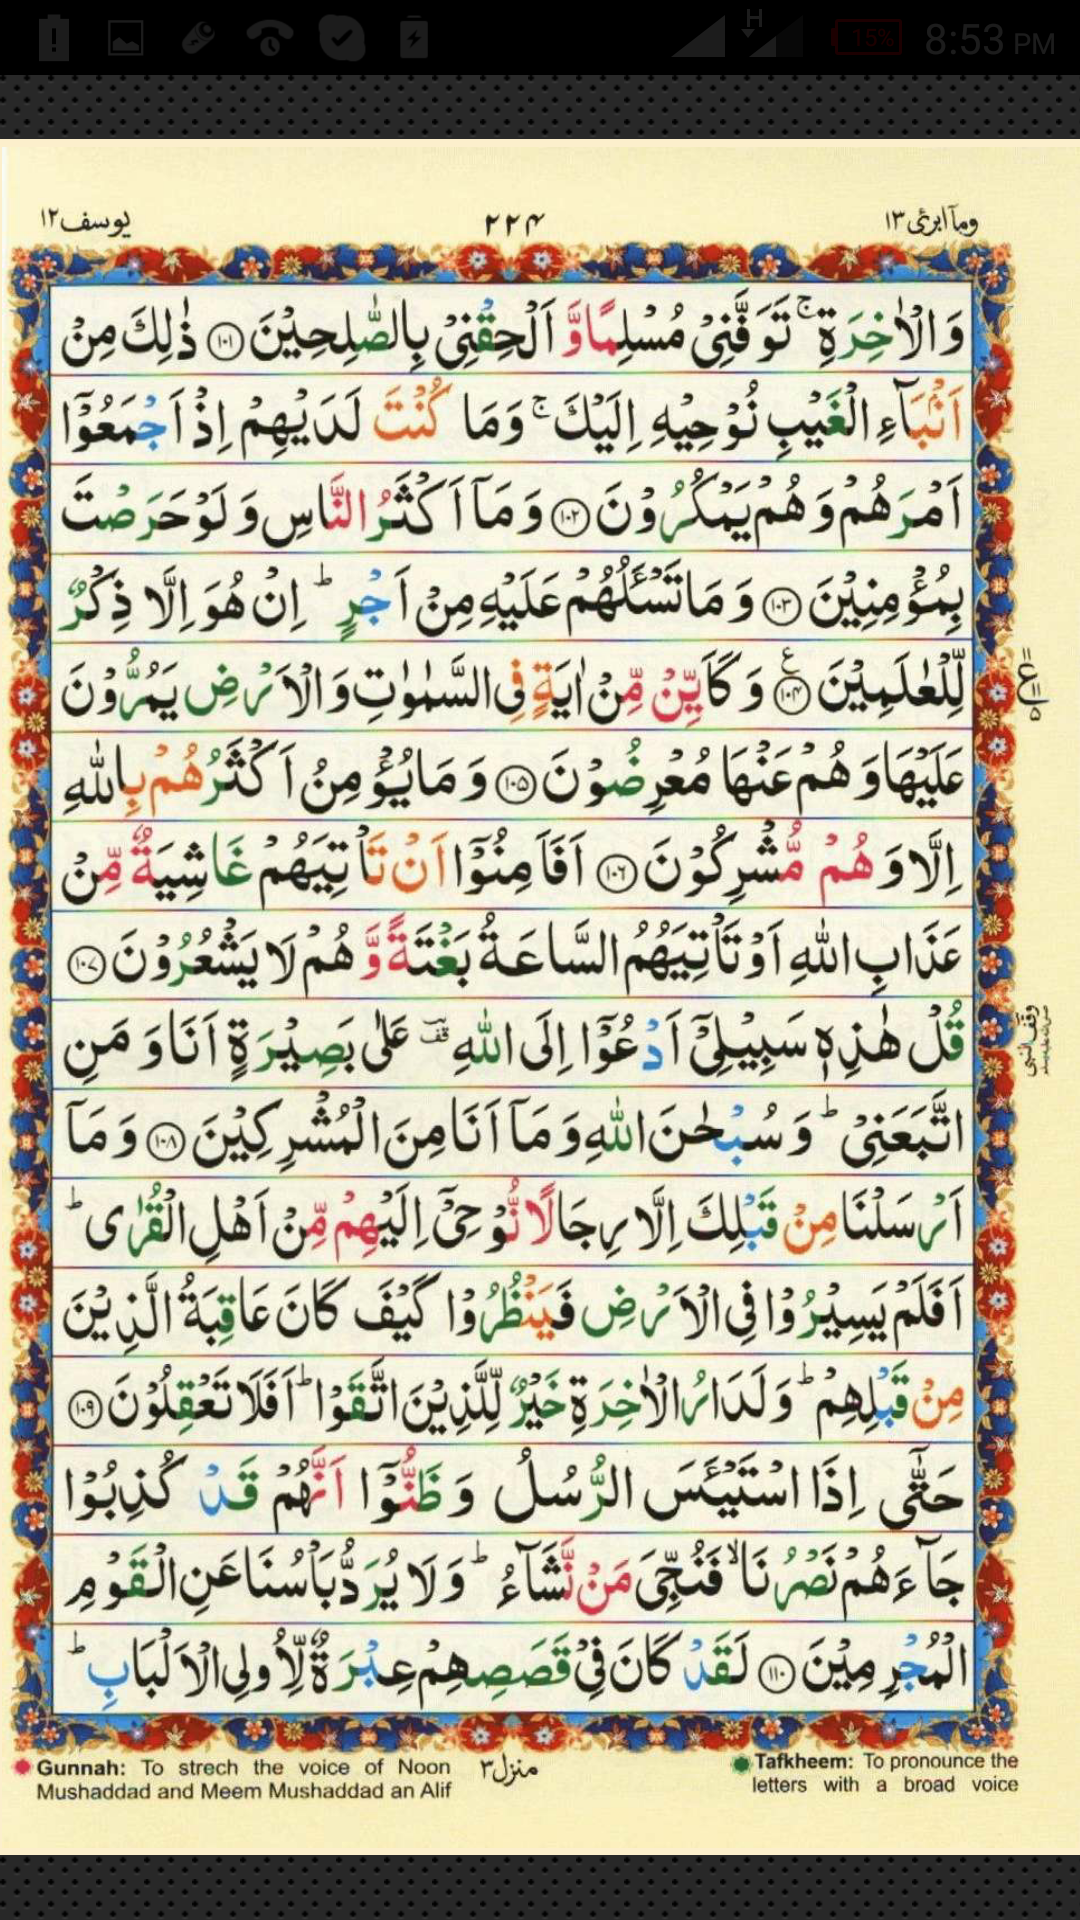 H
15%
8:53 PM
وما ابرئ ١٣
٢٢٤
يوسف ١٢
وَالْاٰخِرَةِ ۚ تَوَفَّنِیْ مُسْلِمًا وَّ اَلْحِقْنِیْ بِالصّٰلِحِیْنَ ۝١٠١ ذٰلِكَ مِنْ
اَنْۢبَآءِ الْغَیْبِ نُوْحِیْهِ اِلَیْكَ ۚ وَمَا كُنْتَ لَدَیْهِمْ اِذْ اَجْمَعُوْۤا
اَمْرَهُمْ وَهُمْ یَمْكُرُوْنَ ۝١٠٢ وَمَاۤ اَكْثَرُ النَّاسِ وَلَوْ حَرَصْتَ
بِمُؤْمِنِیْنَ ۝١٠٣ وَمَا تَسْـَٔلُهُمْ عَلَیْهِ مِنْ اَجْرٍ ؕ اِنْ هُوَ اِلَّا ذِكْرٌ
لِّلْعٰلَمِیْنَ ۝١٠٤ ع وَكَاَیِّنْ مِّنْ اٰیَةٍ فِی السَّمٰوٰتِ وَالْاَرْضِ یَمُرُّوْنَ
عَلَیْهَا وَهُمْ عَنْهَا مُعْرِضُوْنَ ۝١٠٥ وَمَا یُؤْمِنُ اَكْثَرُهُمْ بِاللّٰهِ
اِلَّا وَهُمْ مُّشْرِكُوْنَ ۝١٠٦ اَفَاَمِنُوْۤا اَنْ تَاْتِیَهُمْ غَاشِیَةٌ مِّنْ
عَذَابِ اللّٰهِ اَوْ تَاْتِیَهُمُ السَّاعَةُ بَغْتَةً وَّهُمْ لَا یَشْعُرُوْنَ ۝١٠٧
قُلْ هٰذِهٖ سَبِیْلِیْۤ اَدْعُوْۤا اِلَی اللّٰهِ ؔقف عَلٰی بَصِیْرَةٍ اَنَا وَمَنِ
اتَّبَعَنِیْ ؕ وَسُبْحٰنَ اللّٰهِ وَمَاۤ اَنَا مِنَ الْمُشْرِكِیْنَ ۝١٠٨ وَمَاۤ
اَرْسَلْنَا مِنْ قَبْلِكَ اِلَّا رِجَالًا نُّوْحِیْۤ اِلَیْهِمْ مِّنْ اَهْلِ الْقُرٰی ؕ
اَفَلَمْ یَسِیْرُوْا فِی الْاَرْضِ فَیَنْظُرُوْا كَیْفَ كَانَ عَاقِبَةُ الَّذِیْنَ
مِنْ قَبْلِهِمْ ؕ وَلَدَارُ الْاٰخِرَةِ خَیْرٌ لِّلَّذِیْنَ اتَّقَوْا ؕ اَفَلَا تَعْقِلُوْنَ ۝١٠٩
حَتّٰۤی اِذَا اسْتَیْـَٔسَ الرُّسُلُ وَظَنُّوْۤا اَنَّهُمْ قَدْ كُذِبُوْا
جَآءَهُمْ نَصْرُنَا ۙ فَنُجِّیَ مَنْ نَّشَآءُ ؕ وَلَا یُرَدُّ بَاْسُنَا عَنِ الْقَوْمِ
الْمُجْرِمِیْنَ ۝١١٠ لَقَدْ كَانَ فِیْ قَصَصِهِمْ عِبْرَةٌ لِّاُولِی الْاَلْبَابِ ؕ
Gunnah: To strech the voice of Noon
Mushaddad and Meem Mushaddad an Alif
منزل ٣
Tafkheem: To pronounce the
letters with a broad voice